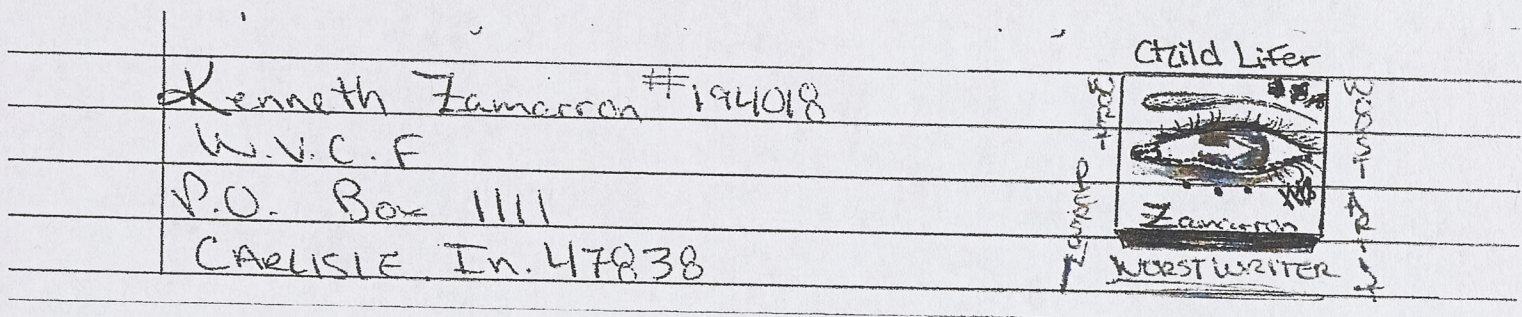 Kenneth Zamarron #194018
W.V.C.F
P.O. Box 1111
CARLISLE In. 47838
Child Lifer
Zamarron
WORST WRITER